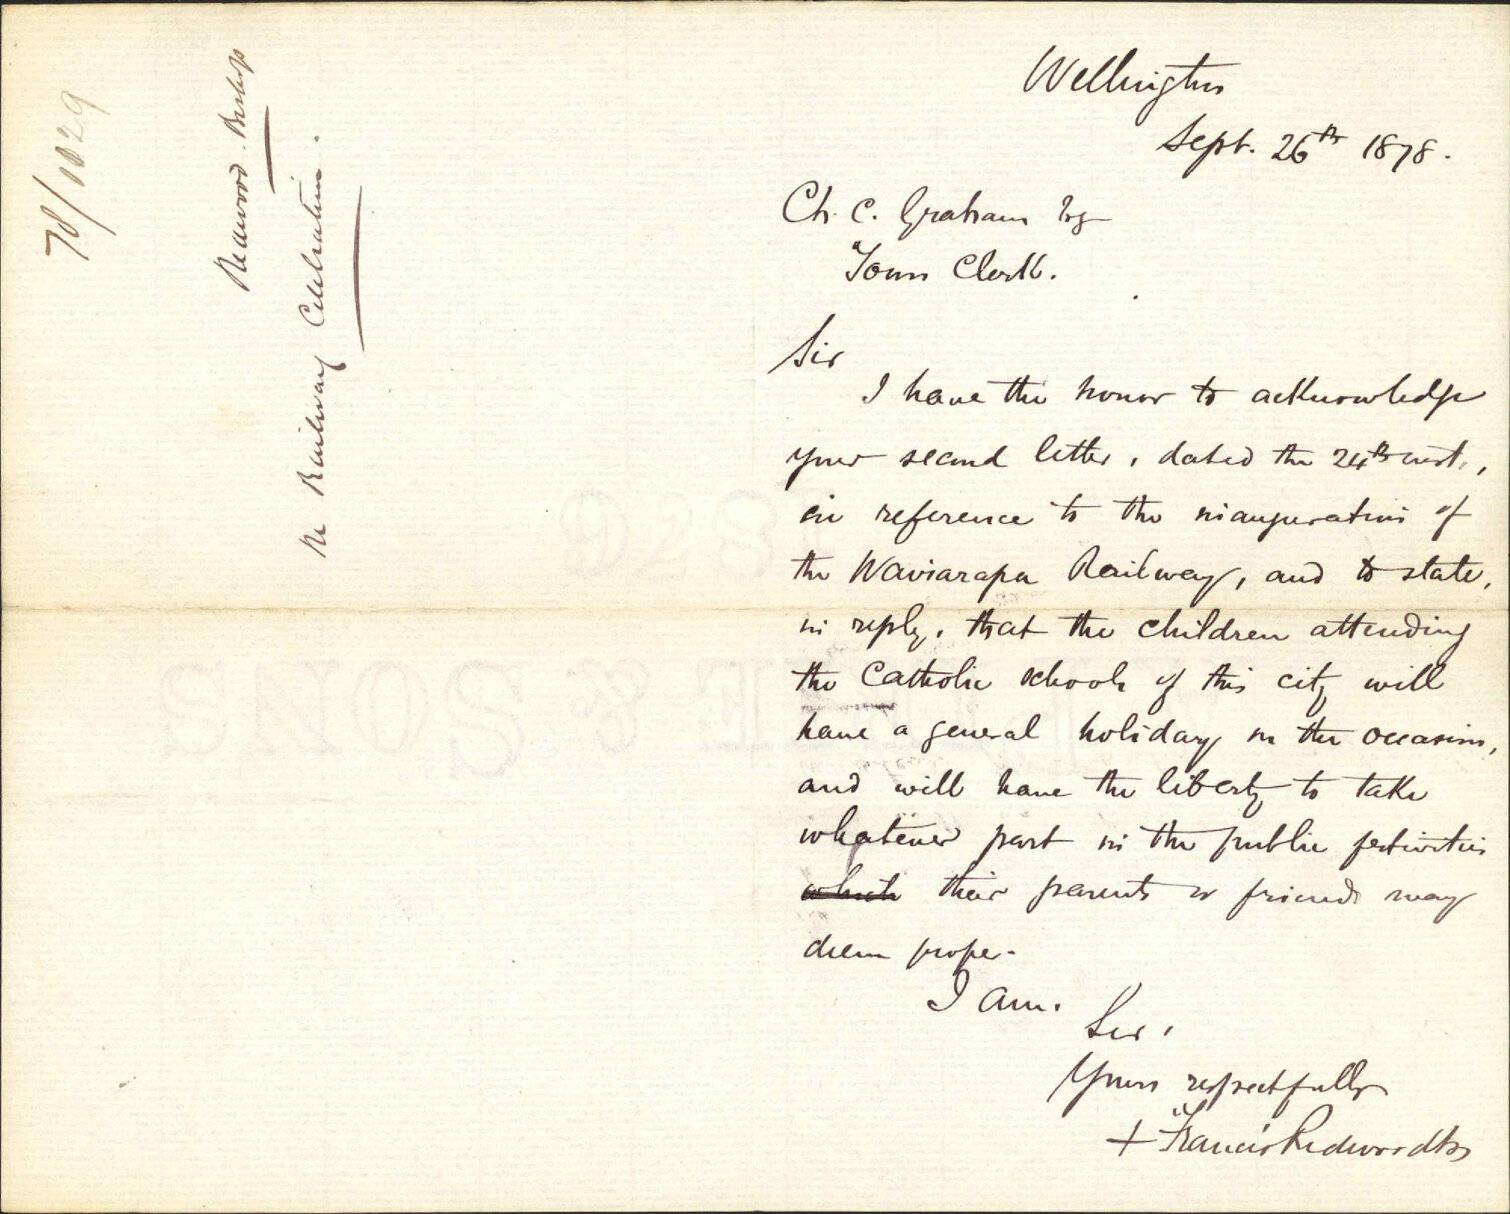 78/1029
Redwood. Bishop
Re Railway Celebration.
Wellington
Sept. 26th 1878.
Ch. C. Graham Esq
Town Clerk.
Sir
I have the honor to acknowledge
your second letter, dated the 24th inst.,
in reference to the inauguration of
the Wairarapa Railway, and to state,
in reply, that the children attending
the Catholic schools of this city will
have a general holiday on the occasion,
and will have the liberty to take
whatever part in the public festivities
which their parents or friends may
deem proper.
I am.
Sir,
Yours respectfully
+ Francis Redwood